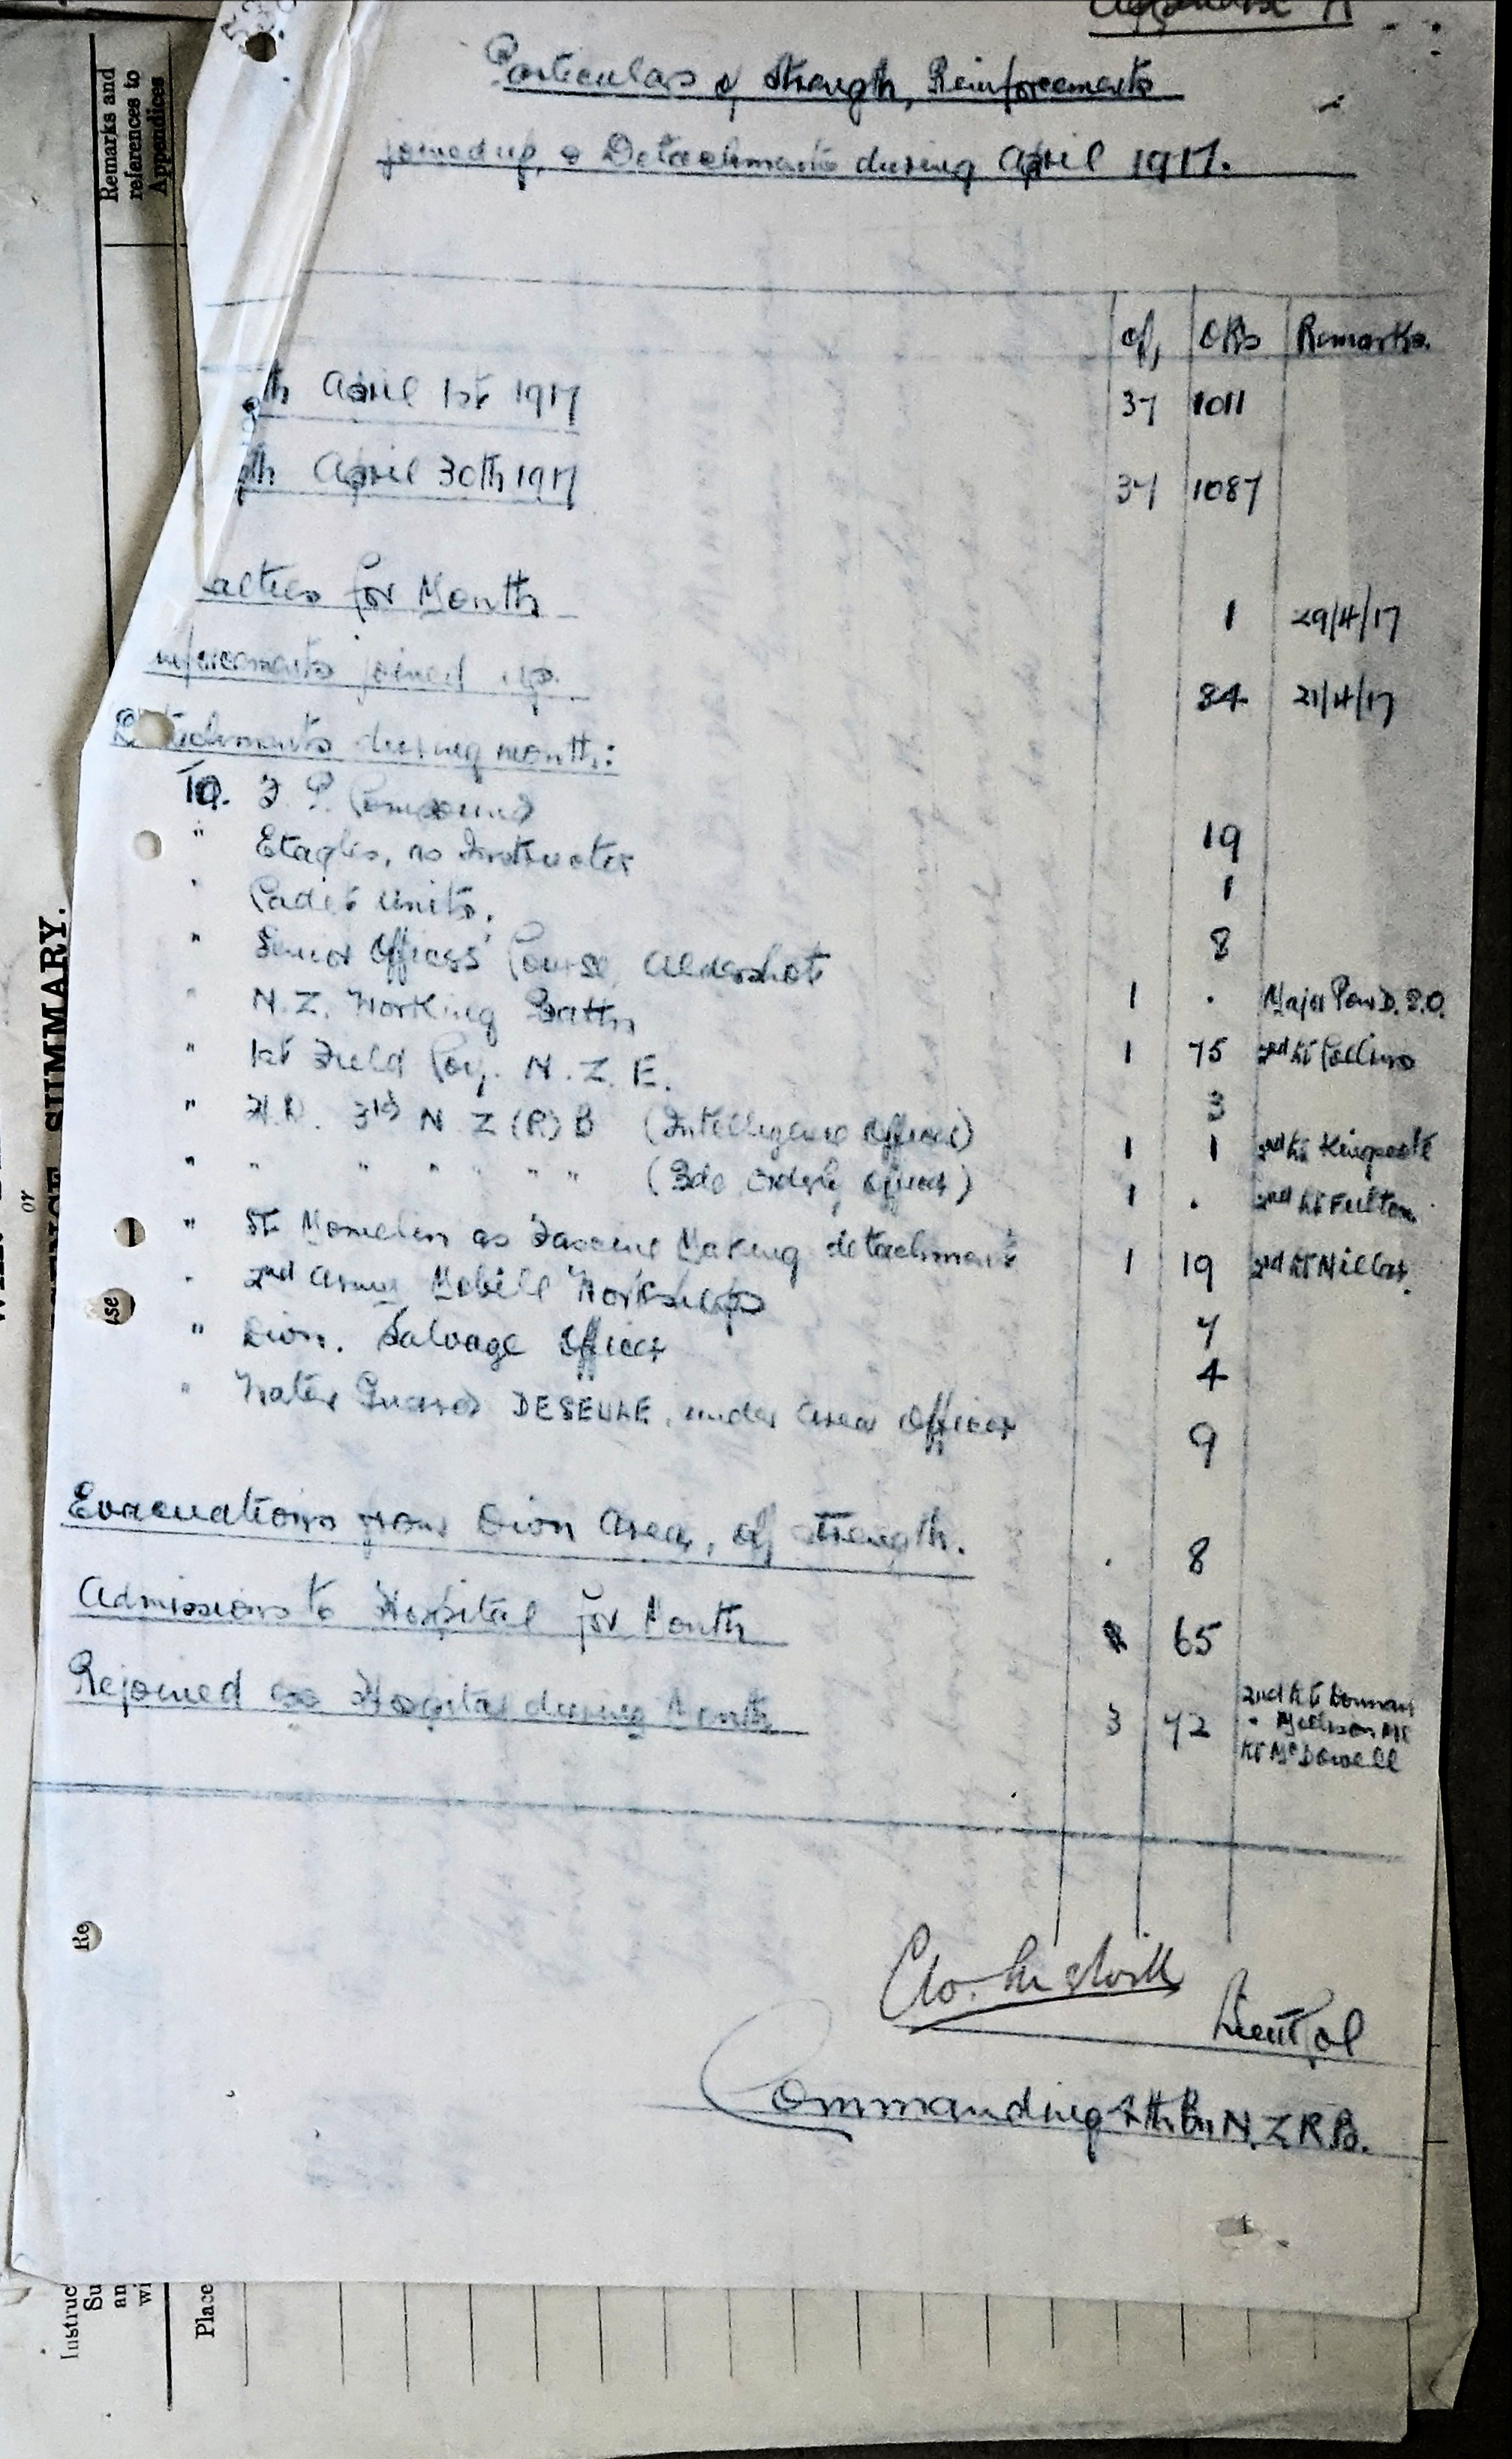 Appendix A
Particulars of Strength, Reinforcements
joined up, & Detachments during April 1917.
Remarks and
references to
Appendices
Of, ORs Remarks.
th April 1st 1917 37 1011
gth April 30th 1917 37 1087
alties for Month 1 29/4/17
inforcements joined up. 84 21/4/17
Detachments during month:
To. F. P. Compound 19
" Etaples, as Instructor 1
" Cadet Units. 8
" Senior Officers' Course Aldershot 1 . Major Pow D.S.O.
" N.Z. Working Battn 1 75 2nd Lt Collins
" 1st Field Coy. N.Z.E. 3
" H.Q. 3rd N Z (R) B (Intelligence Officer) 1 1 2nd Lt
" " " " " " " (Bde Orderly Officer) 1 . 2nd Lt Fulton
" St Momelin as Fascine Making detachment 1 19 2nd Lt Millar
" 2nd Army Mobile Workshops 7
" Divn. Salvage Officer 4
" Water Guard DESEULE, under Area Officer 9
Evacuations from Divn Area, off strength. . 8
Admissions to Hospital for Month 65
Rejoined ex Hospital during Month 3 72 2nd Lt
"
Lt McDowell
Lieut Col
Commanding 4th Bn N.Z.R.B.
SUMMARY.
or
Re
Instruc
Su
an
wi
Place